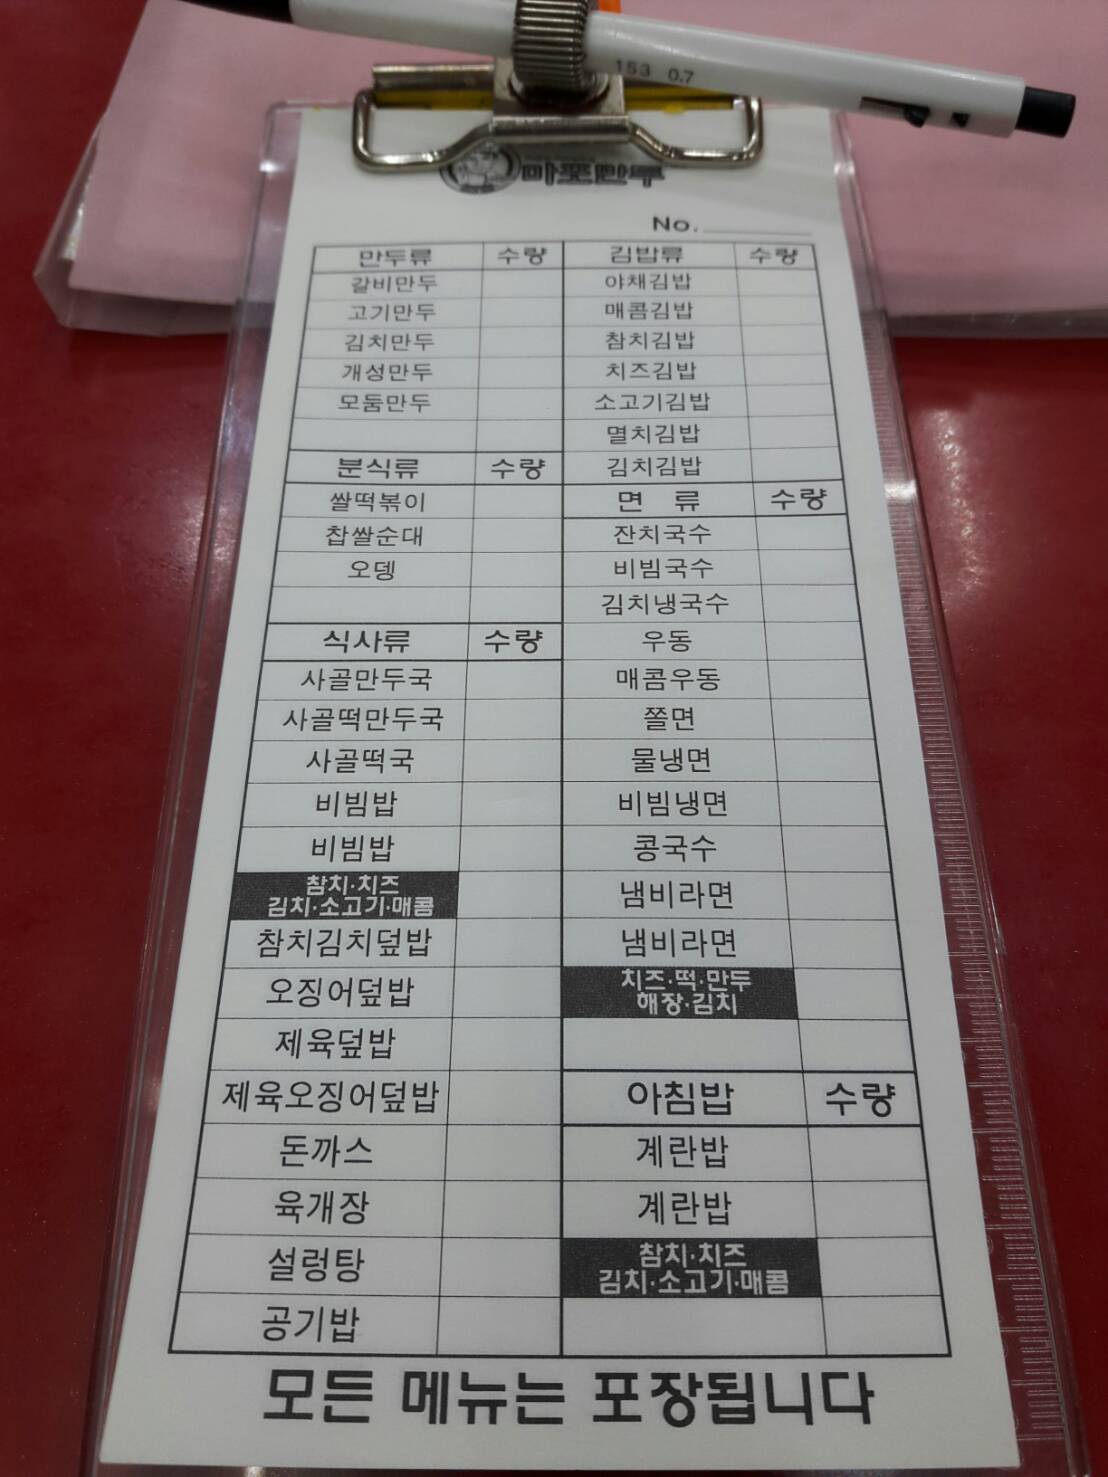 153 0.7
마포만두
No.
만두류 수량 김밥류 수량
갈비만두 야채김밥
고기만두 매콤김밥
김치만두 참치김밥
개성만두 치즈김밥
모둠만두 소고기김밥
멸치김밥
분식류 수량 김치김밥
쌀떡볶이 면 류 수량
찹쌀순대 잔치국수
오뎅 비빔국수
김치냉국수
식사류 수량 우동
사골만두국 매콤우동
사골떡만두국 쫄면
사골떡국 물냉면
비빔밥 비빔냉면
비빔밥 콩국수
참치·치즈
김치·소고기·매콤 냄비라면
참치김치덮밥 냄비라면
오징어덮밥 치즈·떡·만두
해장·김치
제육덮밥
제육오징어덮밥 아침밥 수량
돈까스 계란밥
육개장 계란밥
설렁탕 참치·치즈
김치·소고기·매콤
공기밥
모든 메뉴는 포장됩니다